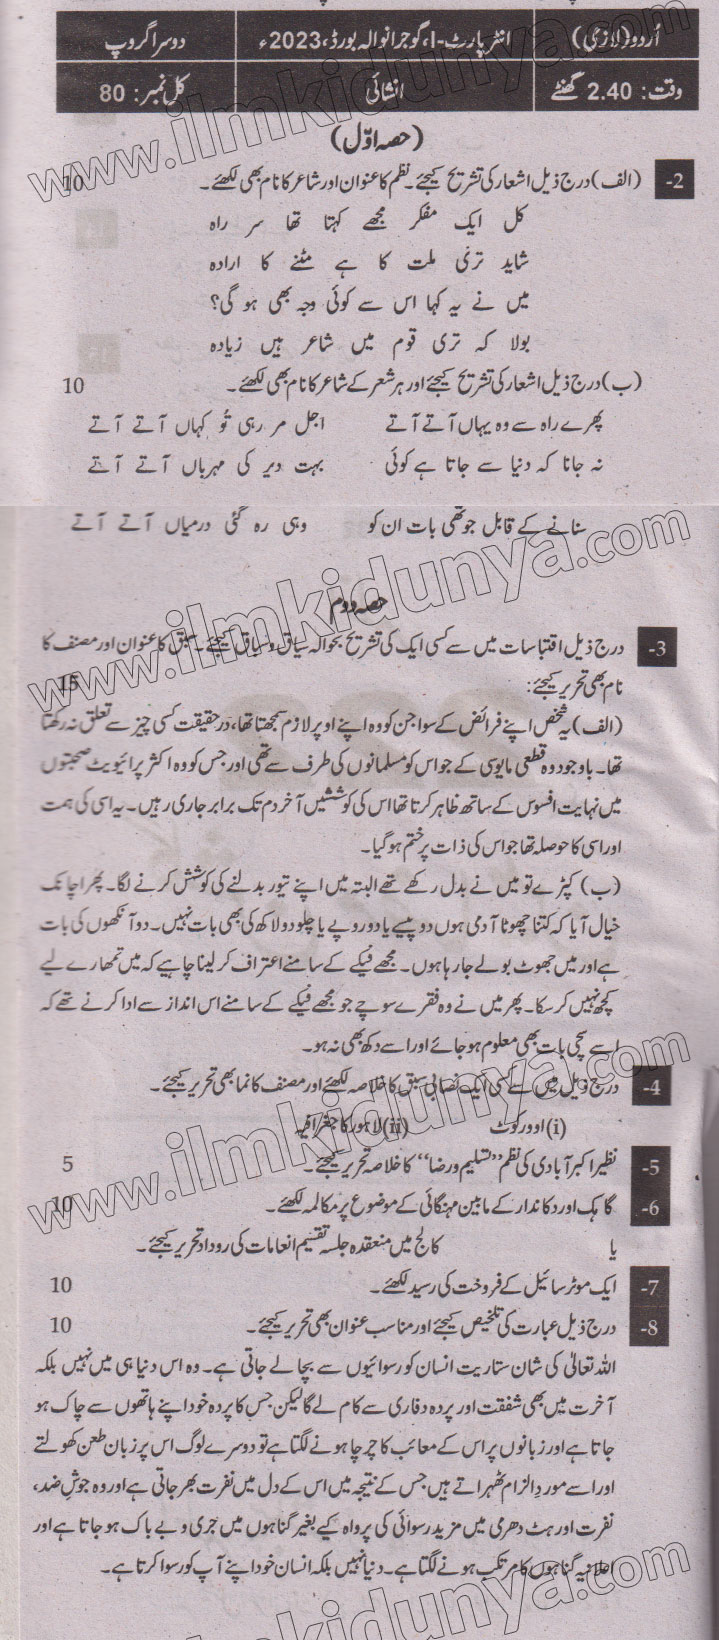 اُردو (لازمی) انٹر پارٹ-I، گوجرانوالہ بورڈ، 2023ء دوسرا گروپ
وقت: 2.40 گھنٹے انشائی کل نمبر: 80
(حصہ اوّل)
2- (الف) درج ذیل اشعار کی تشریح کیجئے۔ نظم کا عنوان اور شاعر کا نام بھی لکھئے۔ 10
کل ایک مفکر مجھے کہتا تھا سر راہ
شاید تری ملت کا ہے مٹنے کا ارادہ
میں نے یہ کہا اس سے کوئی وجہ بھی ہو گی؟
بولا کہ تری قوم میں شاعر ہیں زیادہ
(ب) درج ذیل اشعار کی تشریح کیجئے اور ہر شعر کے شاعر کا نام بھی لکھئے۔ 10
پھرے راہ سے وہ یہاں آتے آتے اجل مر رہی تُو کہاں آتے آتے
نہ جانا کہ دنیا سے جاتا ہے کوئی بہت دیر کی مہرباں آتے آتے
سنانے کے قابل جو تھی بات ان کو وہی رہ گئی درمیاں آتے آتے
حصہ دوم
3- درج ذیل اقتباسات میں سے کسی ایک کی تشریح بحوالہ سیاق و سباق کیجئے۔ سبق کا عنوان اور مصنف کا
نام بھی تحریر کیجئے: 15
(الف) یہ شخص اپنے فرائض کے سوا جن کو وہ اپنے اوپر لازم سمجھتا تھا، در حقیقت کسی چیز سے تعلق نہ رکھتا
تھا۔ باوجود وہ قطعی مایوسی کے جو اس کو مسلمانوں کی طرف سے تھی اور جس کو وہ اکثر پرائیویٹ صحبتوں
میں نہایت افسوس کے ساتھ ظاہر کرتا تھا اس کی کوششیں آخر دم تک برابر جاری رہیں۔ یہ اسی کی ہمت
اور اسی کا حوصلہ تھا جو اس کی ذات پر ختم ہو گیا۔
(ب) کپڑے تو میں نے بدل رکھے تھے البتہ میں اپنے تیور بدلنے کی کوشش کرنے لگا۔ پھر اچانک
خیال آیا کہ کتنا چھوٹا آدمی ہوں دو پیسے یا دو روپے یا چلو دو لاکھ کی بھی بات نہیں۔ دو آنکھوں کی بات
ہے اور میں جھوٹ بولے جا رہا ہوں۔ مجھے فیکے کے سامنے اعتراف کر لینا چاہیے کہ میں تمھارے لیے
کچھ نہیں کر سکا۔ پھر میں نے وہ فقرے سوچے جو مجھے فیکے کے سامنے اس انداز سے ادا کرنے تھے کہ
اسے سچی بات بھی معلوم ہو جائے اور اسے دکھ بھی نہ ہو۔
4- درج ذیل میں سے کسی ایک نصابی سبق کا خلاصہ لکھئے اور مصنف کا نما بھی تحریر کیجئے۔
(i) اوور کوٹ (ii) لاہور کا جغرافیہ
5- نظیر اکبر آبادی کی نظم "تسلیم و رضا" کا خلاصہ تحریر کیجئے۔ 5
6- گاہک اور دکاندار کے مابین مہنگائی کے موضوع پر مکالمہ لکھئے۔ 10
یا کالج میں منعقدہ جلسہ تقسیم انعامات کی روداد تحریر کیجئے۔
7- ایک موٹر سائیل کے فروخت کی رسید لکھئے۔ 10
8- درج ذیل عبارت کی تلخیص کیجئے اور مناسب عنوان بھی تحریر کیجئے۔ 10
اللہ تعالیٰ کی شان ستاریت انسان کو رسوائیوں سے بچا لے جاتی ہے۔ وہ اس دنیا ہی میں نہیں بلکہ
آخرت میں بھی شفقت اور پردہ دفاری سے کام لے گا لیکن جس کا پردہ خود اپنے ہاتھوں سے چاک ہو
جاتا ہے اور زبانوں پر اس کے معائب کا چرچا ہونے لگتا ہے تو دوسرے لوگ اس پر زبان طعن کھولتے
اور اسے مورد الزام ٹھہراتے ہیں جس کے نتیجہ میں اس کے دل میں نفرت بھر جاتی ہے اور وہ جوشِ ضد،
نفرت اور ہٹ دھرمی میں مزید رسوائی کی پرواہ کیے بغیر گناہوں میں جری و بے باک ہو جاتا ہے اور
اعلانیہ گناہوں کا مرتکب ہونے لگتا ہے۔ دنیا نہیں بلکہ انسان خود اپنے آپ کو رسوا کرتا ہے۔
www.ilmkidunya.com
www.ilmkidunya.com
www.ilmkidunya.com
www.ilmkidunya.com